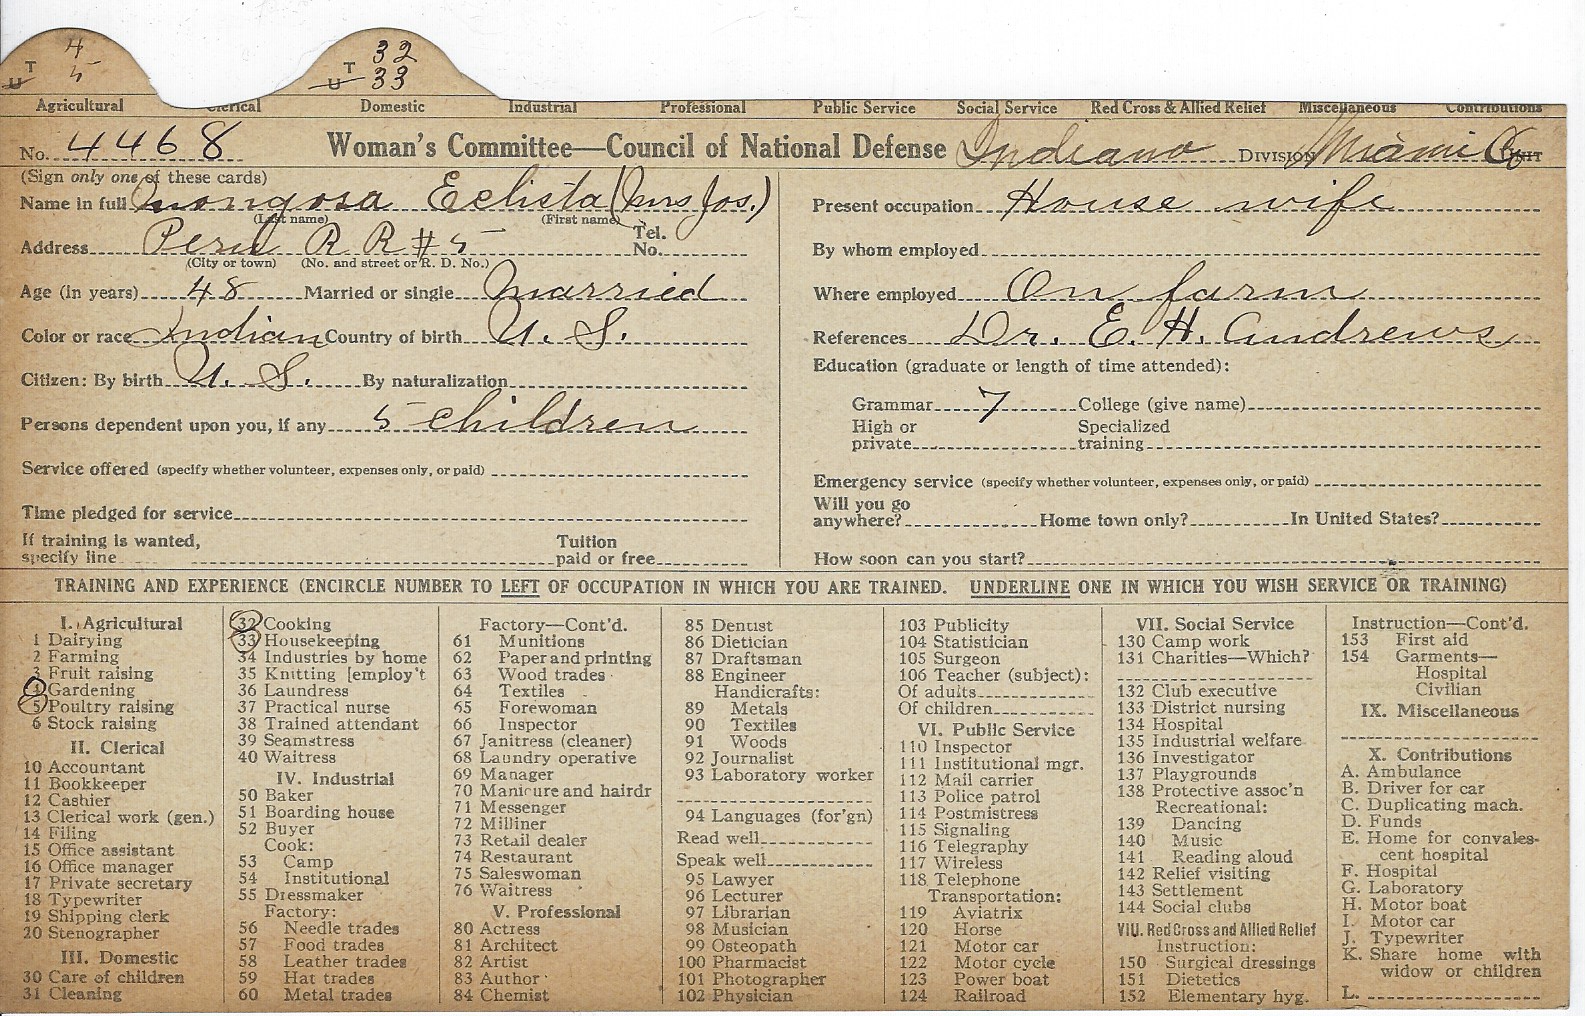 4 32
T 5 T 33
U U
Agricultural Clerical Domestic Industrial Professional Public Service Social Service Red Cross & Allied Relief Miscellaneous Contributions
No. 4468 Woman's Committee—Council of National Defense Indiana DIVISION Miami Co UNIT
(Sign only one of these cards)
Name in full Mongosa Eclista (Mrs Jos.)
(Last name) (First name)
Address Peru R R # 5 Tel. No.
(City or town) (No. and street or R. D. No.)
Age (in years) 48 Married or single Married
Color or race Indian Country of birth U. S.
Citizen: By birth U. S. By naturalization
Persons dependent upon you, if any 5 children
Service offered (specify whether volunteer, expenses only, or paid)
Time pledged for service
If training is wanted, Tuition
specify line paid or free
Present occupation House wife
By whom employed
Where employed On farm
References Dr. E. H. Andrews
Education (graduate or length of time attended):
Grammar 7 College (give name)
High or Specialized
private training
Emergency service (specify whether volunteer, expenses only, or paid)
Will you go
anywhere? Home town only? In United States?
How soon can you start?
TRAINING AND EXPERIENCE (ENCIRCLE NUMBER TO LEFT OF OCCUPATION IN WHICH YOU ARE TRAINED. UNDERLINE ONE IN WHICH YOU WISH SERVICE OR TRAINING)
I. Agricultural
1 Dairying
2 Farming
3 Fruit raising
4 Gardening
5 Poultry raising
6 Stock raising
II. Clerical
10 Accountant
11 Bookkeeper
12 Cashier
13 Clerical work (gen.)
14 Filing
15 Office assistant
16 Office manager
17 Private secretary
18 Typewriter
19 Shipping clerk
20 Stenographer
III. Domestic
30 Care of children
31 Cleaning
32 Cooking
33 Housekeeping
34 Industries by home
35 Knitting [employ't
36 Laundress
37 Practical nurse
38 Trained attendant
39 Seamstress
40 Waitress
IV. Industrial
50 Baker
51 Boarding house
52 Buyer
Cook:
53 Camp
54 Institutional
55 Dressmaker
Factory:
56 Needle trades
57 Food trades
58 Leather trades
59 Hat trades
60 Metal trades
Factory—Cont'd.
61 Munitions
62 Paper and printing
63 Wood trades
64 Textiles
65 Forewoman
66 Inspector
67 Janitress (cleaner)
68 Laundry operative
69 Manager
70 Manicure and hairdr
71 Messenger
72 Milliner
73 Retail dealer
74 Restaurant
75 Saleswoman
76 Waitress
V. Professional
80 Actress
81 Architect
82 Artist
83 Author
84 Chemist
85 Dentist
86 Dietician
87 Draftsman
88 Engineer
Handicrafts:
89 Metals
90 Textiles
91 Woods
92 Journalist
93 Laboratory worker
94 Languages (for'gn)
Read well
Speak well
95 Lawyer
96 Lecturer
97 Librarian
98 Musician
99 Osteopath
100 Pharmacist
101 Photographer
102 Physician
103 Publicity
104 Statistician
105 Surgeon
106 Teacher (subject):
Of adults
Of children
VI. Public Service
110 Inspector
111 Institutional mgr.
112 Mail carrier
113 Police patrol
114 Postmistress
115 Signaling
116 Telegraphy
117 Wireless
118 Telephone
Transportation:
119 Aviatrix
120 Horse
121 Motor car
122 Motor cycle
123 Power boat
124 Railroad
VII. Social Service
130 Camp work
131 Charities—Which?
132 Club executive
133 District nursing
134 Hospital
135 Industrial welfare
136 Investigator
137 Playgrounds
138 Protective assoc'n
Recreational:
139 Dancing
140 Music
141 Reading aloud
142 Relief visiting
143 Settlement
144 Social clubs
VIII. Red Cross and Allied Relief
Instruction:
150 Surgical dressings
151 Dietetics
152 Elementary hyg.
Instruction—Cont'd.
153 First aid
154 Garments—
Hospital
Civilian
IX. Miscellaneous
X. Contributions
A. Ambulance
B. Driver for car
C. Duplicating mach.
D. Funds
E. Home for convales-
cent hospital
F. Hospital
G. Laboratory
H. Motor boat
I. Motor car
J. Typewriter
K. Share home with
widow or children
L.